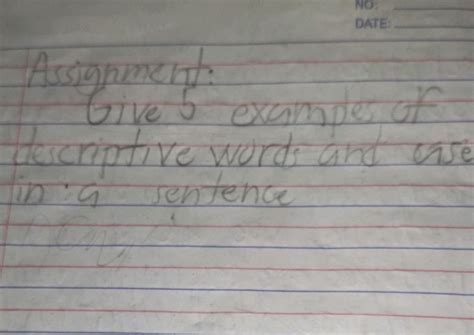 NO:
DATE:
Assignment:
Give 5 examples of
descriptive words and case
in a sentence